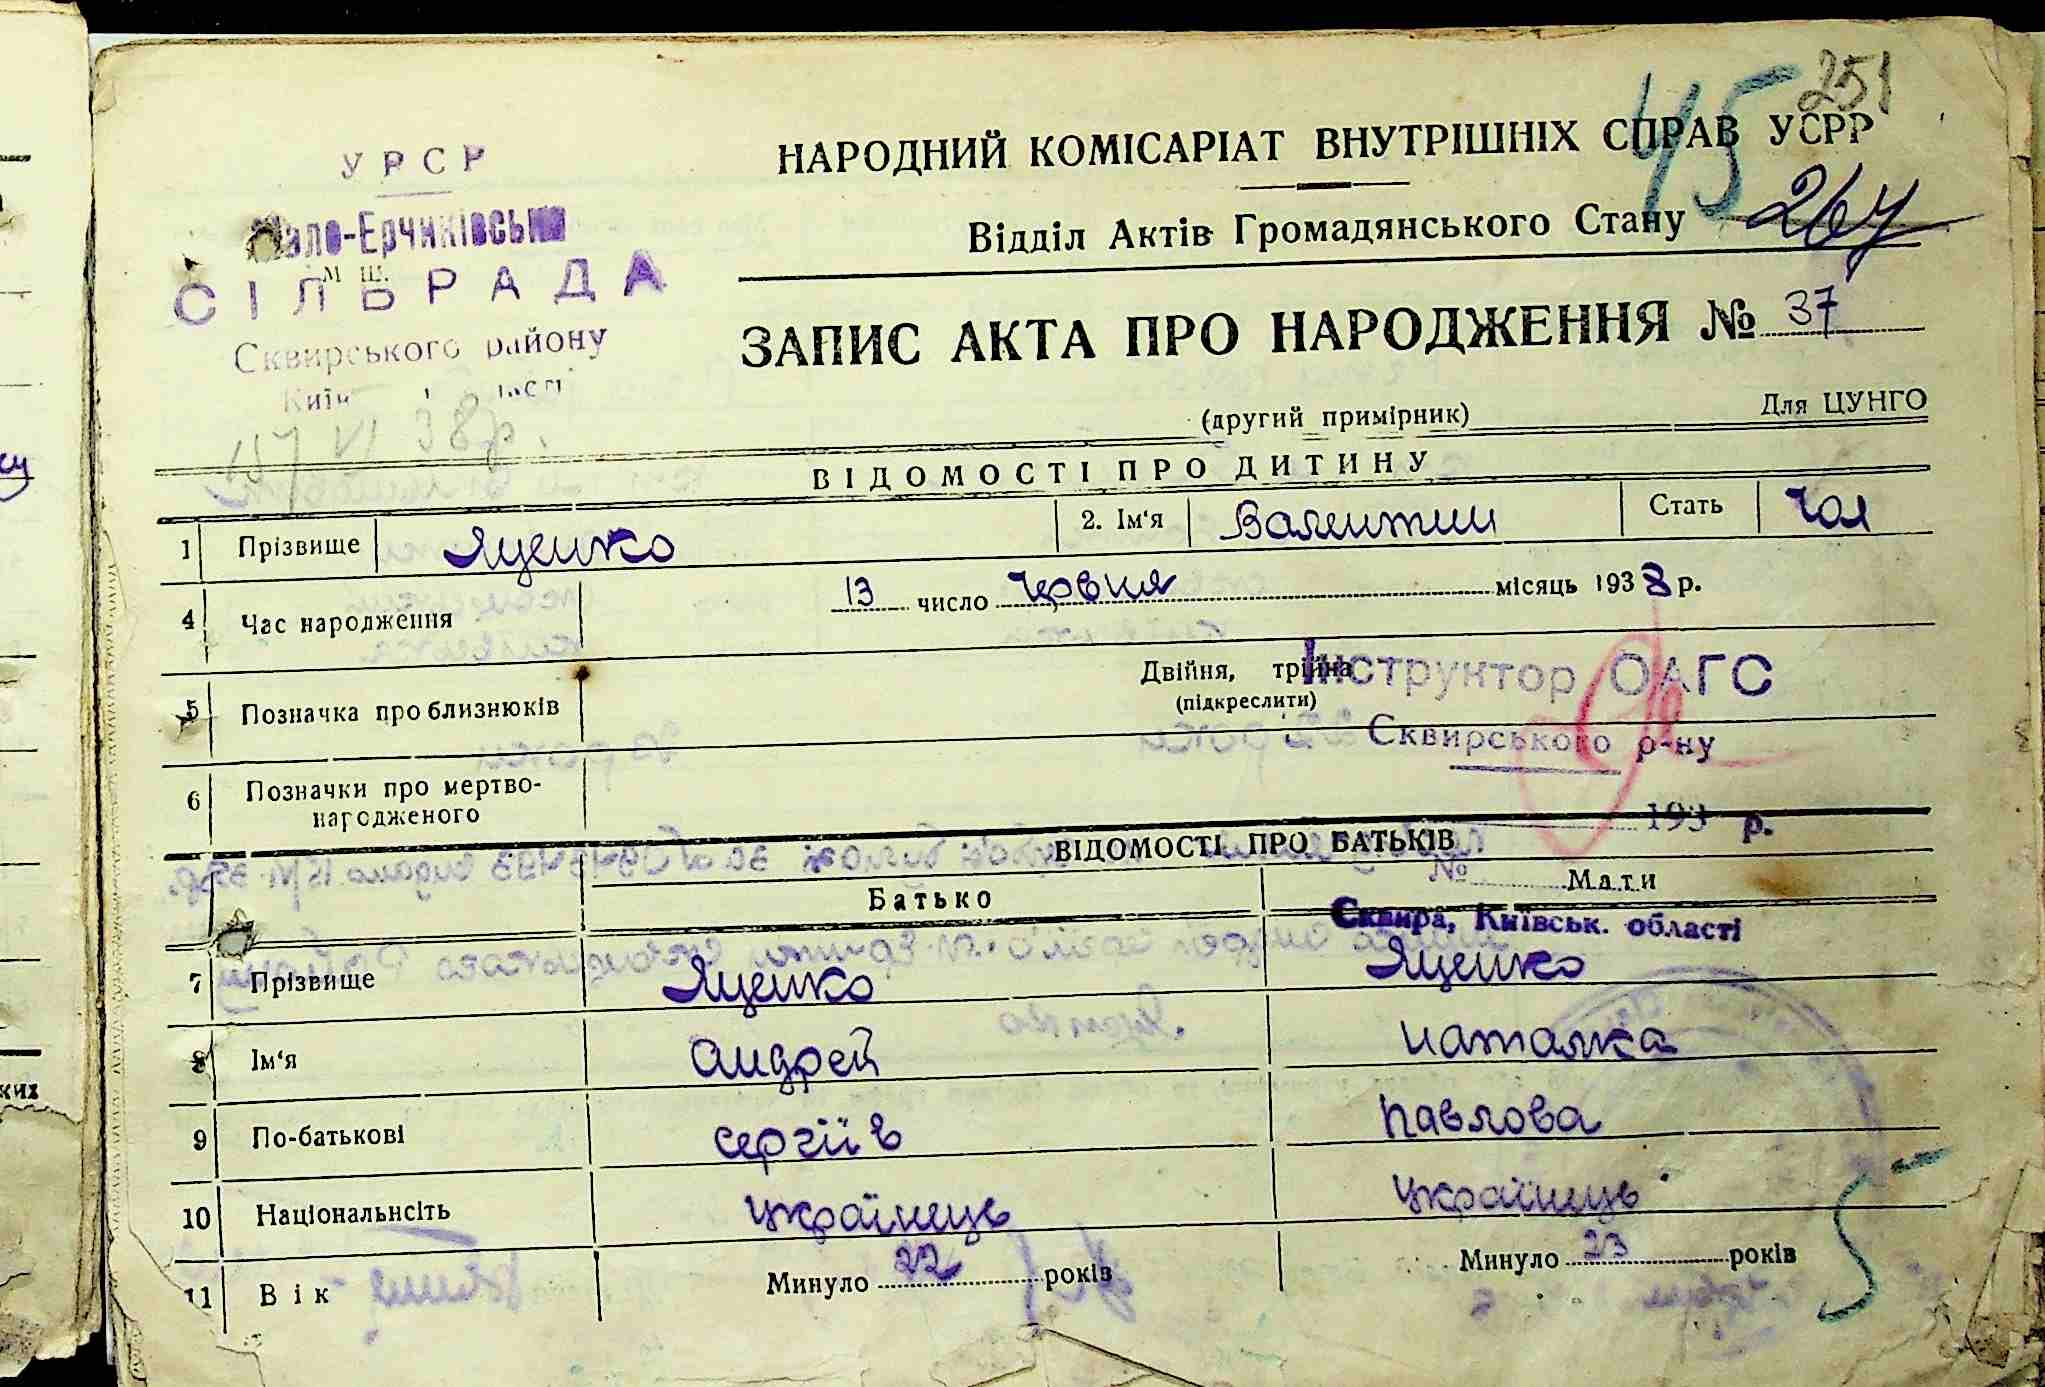 251
45
НАРОДНИЙ КОМІСАРІАТ ВНУТРІШНІХ СПРАВ УСРР
267
Відділ Актів Громадянського Стану
УРСР
Мало-Ерчиківська
СІЛЬРАДА
Сквирського району
ЗАПИС АКТА ПРО НАРОДЖЕННЯ № 37
(другий примірник) Для ЦУНГО
VI 38р.
ВІДОМОСТІ ПРО ДИТИНУ
1 Прізвище Яценко 2. Ім'я Валентин Стать Чол
4 Час народження 13 число червня місяць 1938 р.
5 Позначка про близнюків Двійня, трійна
(підкреслити)
Інструктор ОАГС
Сквирського р-ну
6 Позначки про мертво-
народженого
193 р.
ВІДОМОСТІ ПРО БАТЬКІВ
№
Батько Мати
Сквира, Київськ. області
7 Прізвище Яценко Яценко
8 Ім'я Андрей Наталка
9 По-батькові Сергіїв Павлова
10 Національнсіть Українець Українець
11 Вік Минуло 22 років Минуло 23 років
5
ких